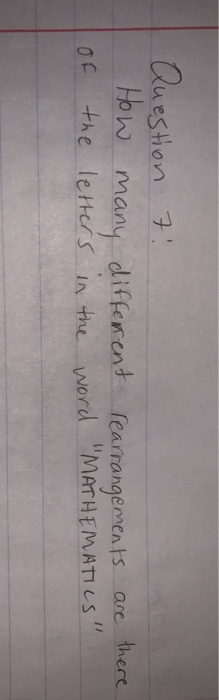 Question 7:
How many different rearrangements are there
of the letters in the word "MATHEMATICS"